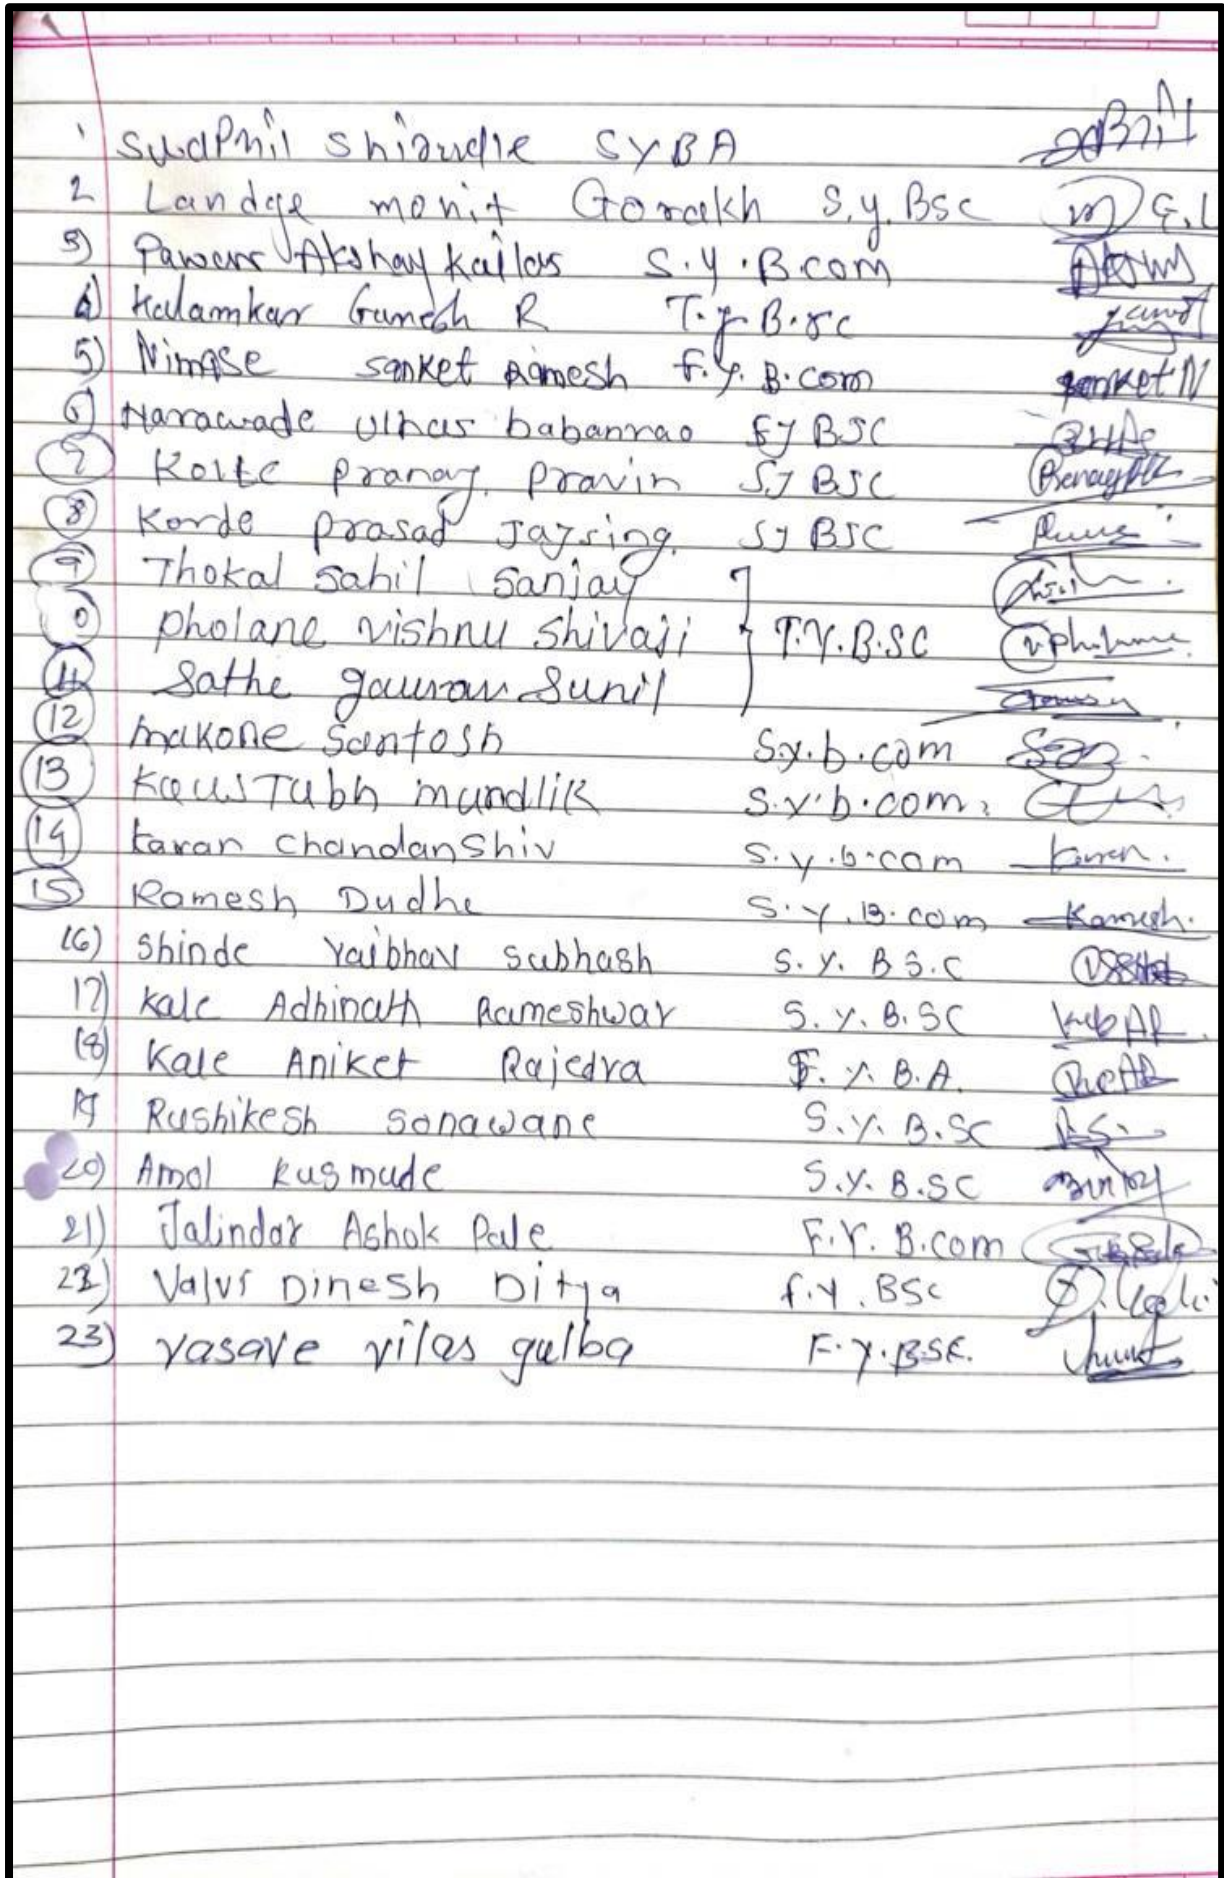 1 Swapnil Shirudle SYBA
2 Landge monit Gorakh S.y.Bsc
3) Pawar Akshay kailas S.y.B.com
4) Kalamkar Ganesh R T.y.B.sc
5) Nimase sanket Ramesh f.y.B.com sanket N
6) Narawade Ulhas babanrao FY BSC
7 Kolte Pranay Pravin SY BSC
8 Korde prasad Jaysing. SY BSC
9 Thokal Sahil Sanjay
10 Pholane vishnu Shivaji T.Y.B.SC
11 Sathe gaurav Sunil
12 makone Santosh S.y.b.com
13 KausTubh mundlik S.y.b.com
14 karan Chandanshiv S.y.b.com karan.
15 Ramesh Dudhe S.Y.B.com Ramesh.
16) Shinde Vaibhav Subhash S.Y.BS.C
17) Kale Adhinath Rameshwar S.Y.B.SC
18) Kale Aniket Rajedra F.Y.B.A.
19 Rushikesh Sonawane S.Y.B.SC
20) Amol kusmude S.Y.B.SC
21) Jalindar Ashok Pale F.Y.B.com
22) Valvi Dinesh Ditya f.y.BSc
23) vasave vilas gulba F.y.BSc.